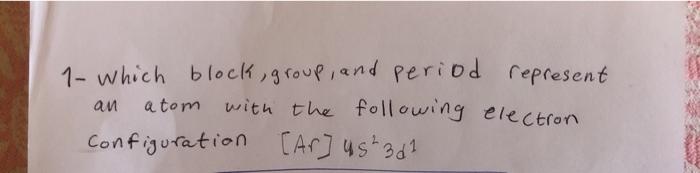 1- which block, group, and period represent
an atom with the following electron
Configuration [Ar] 4s² 3d¹